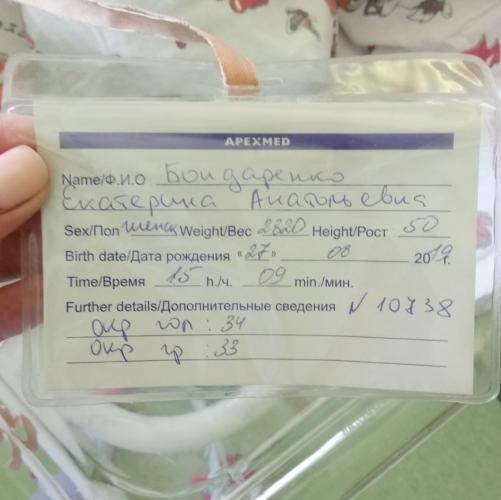 APEXMED
Name/Ф.И.О Бондаренко
Екатерина Анатольевна
Sex/Пол женск Weight/Вес 2820 Height/Рост 50
Birth date/Дата рождения «27» 08 2019г.
Time/Время 15 h./ч. 09 min./мин.
Further details/Дополнительные сведения N 10738
окр гол : 34
окр гр : 33